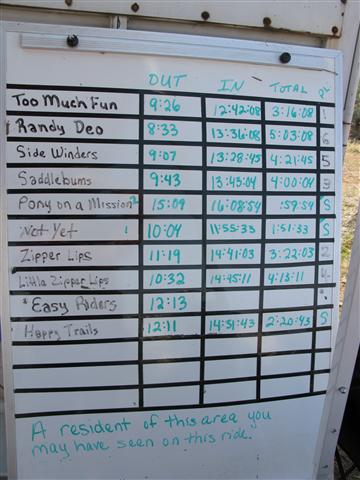 OUT IN TOTAL PL
Too Much Fun 9:26 12:42:08 3:16:08 1
Randy Deo 8:33 13:36:08 5:03:08 6
Side Winders 9:07 13:28:45 4:21:45 5
Saddlebums 9:43 13:43:04 4:00:04 3
Pony on a Mission 2 15:09 16:08:54 :59:54 S
Not Yet 10:04 11:55:33 1:51:33 S
Zipper Lips 11:19 14:41:03 3:22:03 2
Little Zipper Lips 10:32 14:45:11 4:13:11 4
*Easy Riders 12:13
Happy Trails 12:11 14:31:43 2:20:43 S
A resident of this area you
may have seen on this ride.